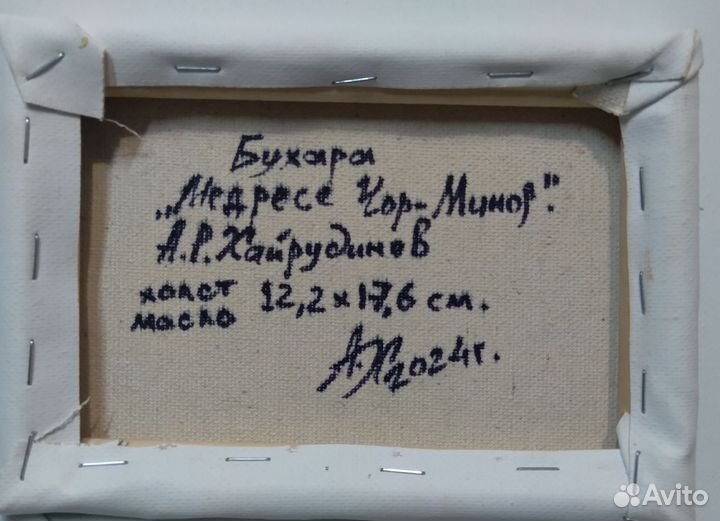 Бухара
„Медресе Чор-Минор".
А.Р. Хайрудинов
холст
масло 12,2 х 17,6 см.
А.Х 2024г.
Avito